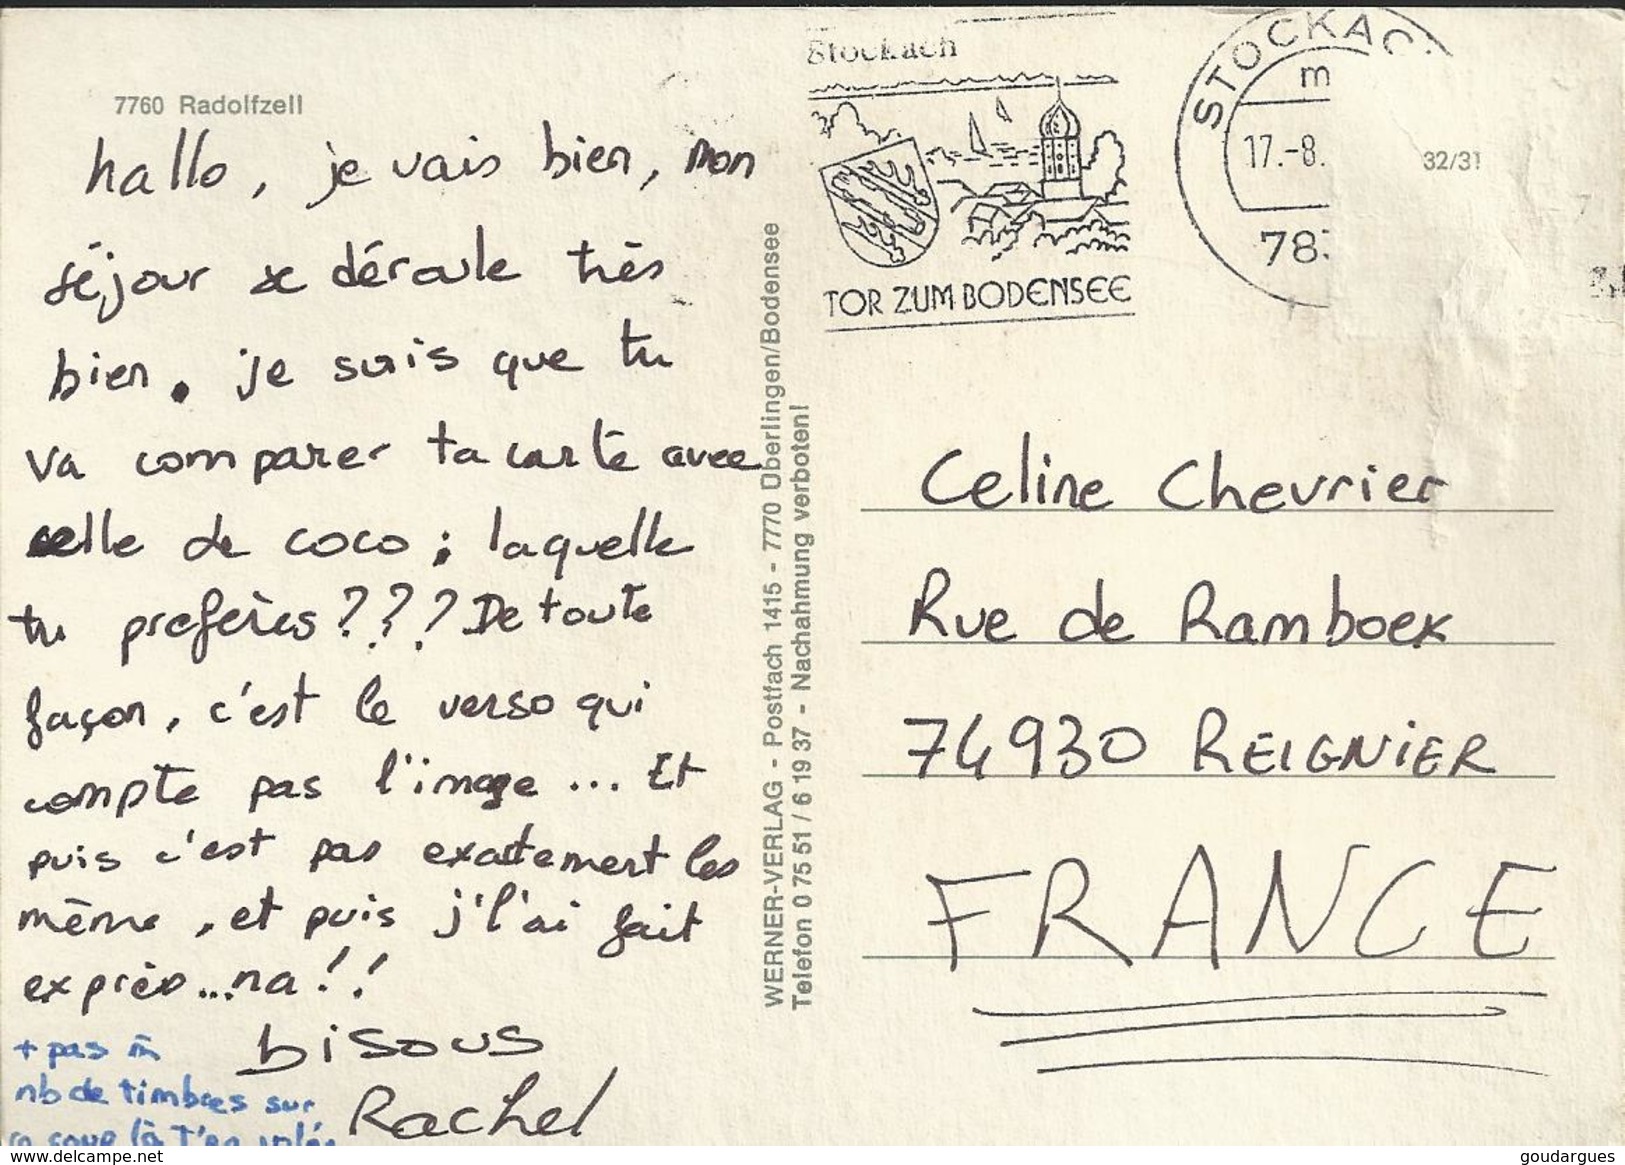 7760 Radolfzell
hallo, je vais bien, mon
séjour se déroule très
bien. je sais que tu
va comparer ta carte avec
celle de coco ; laquelle
tu preferes ??? De toute
façon, c'est le verso qui
compte pas l'image ... Et
puis c'est pas exactement les
même, et puis j'l'ai fait
exprès...na!!
bisous
Rachel
+ pas m̂
nb de timbres sur
WERNER-VERLAG - Postfach 1415 - 7770 Überlingen/Bodensee
Telefon 0 75 51 / 6 19 37 - Nachahmung verboten!
Stockach
TOR ZUM BODENSEE
STOCKAC
m
17.-8.
78
32/31
Celine Chevrier
Rue de Ramboex
74930 REIGNIER
FRANCE
www.delcampe.net
goudargues